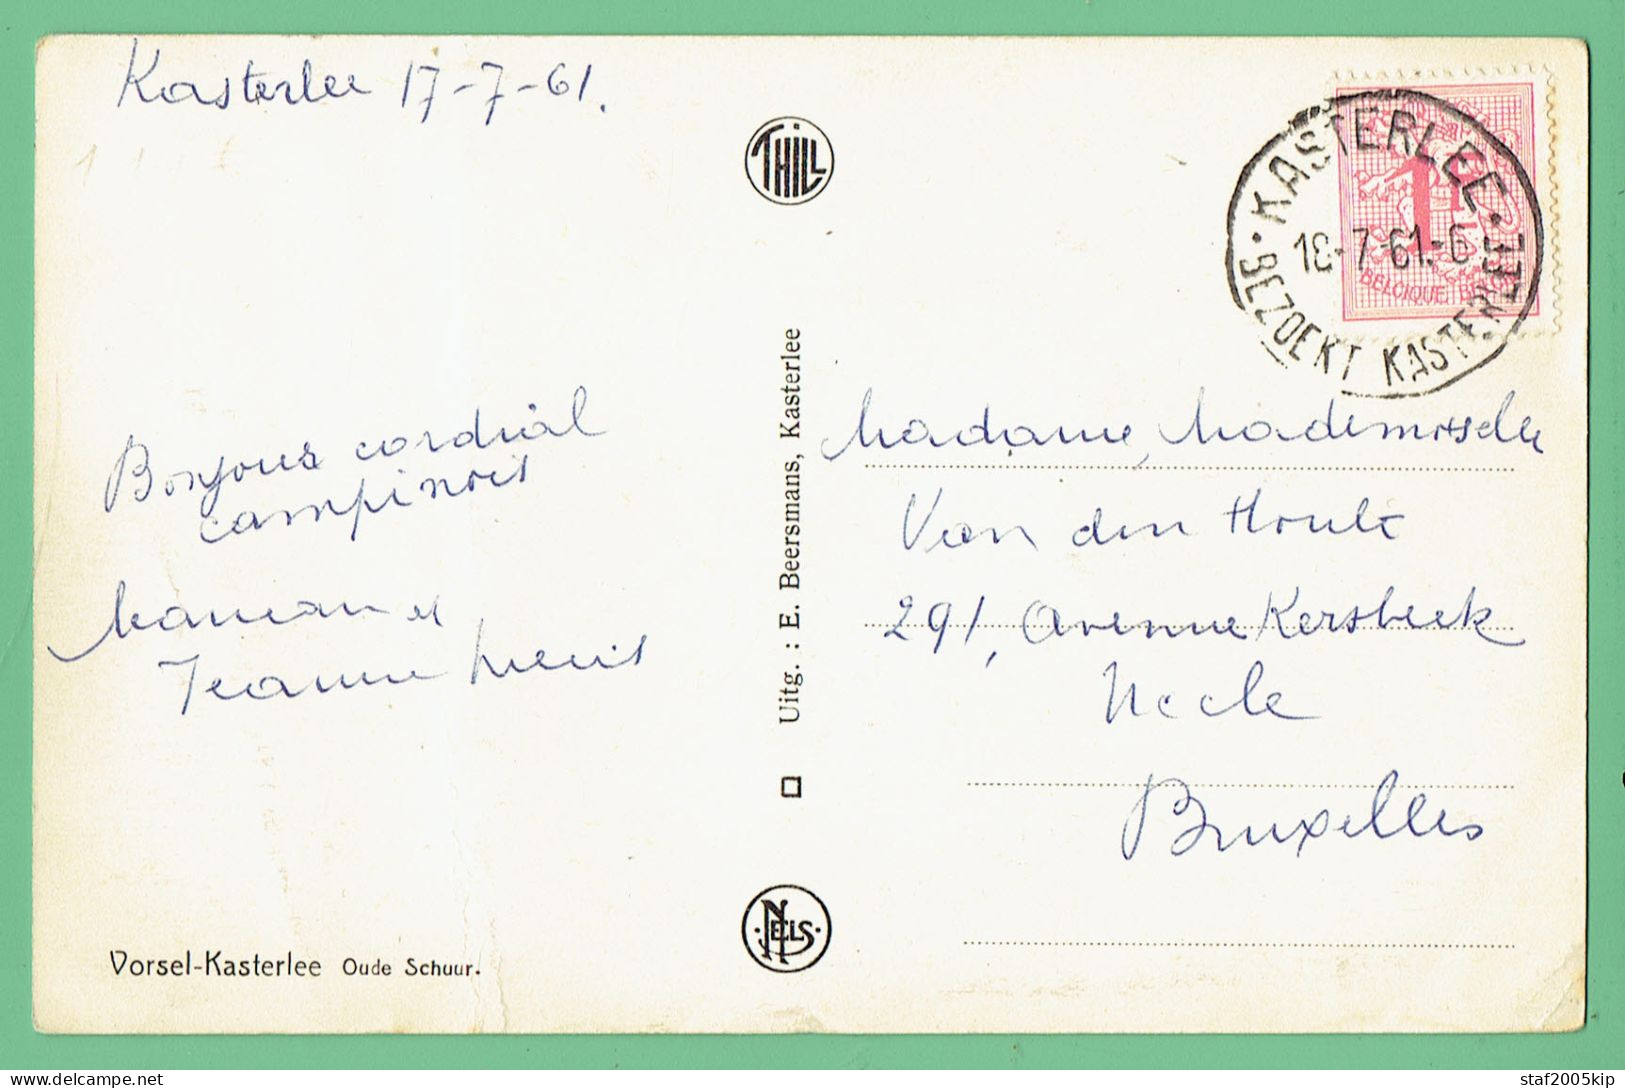 Kasterlee 17-7-61.
Bonjour cordial
campinois
Maman et
Jeanne
THILL
Uitg. : E. Beersmans, Kasterlee
NELS
Vorsel-Kasterlee Oude Schuur.
KASTERLEE
18-7-61-6
BEZOEKT KASTERLEE
1F
BELGIQUE BELGIË
Madame, Mademoiselle
Van den Houte
291, Avenue Kersbeek
Uccle
Bruxelles
staf2005kip